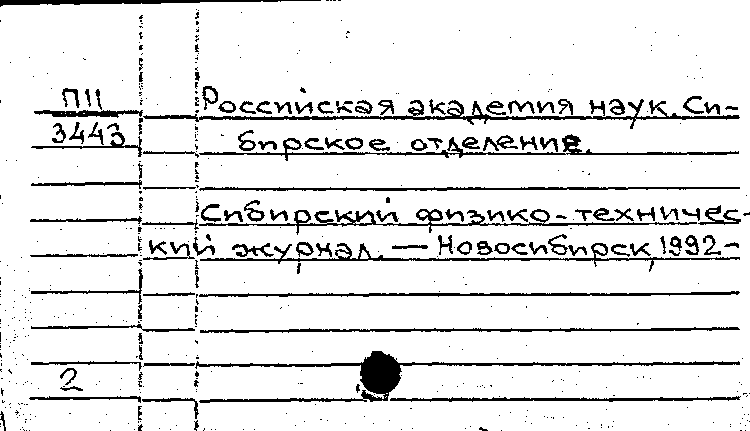 П11
3443
Российская академия наук. Си-
бирское отделение.
Сибирский физико-техничес-
кий журнал. — Новосибирск, 1992-
2